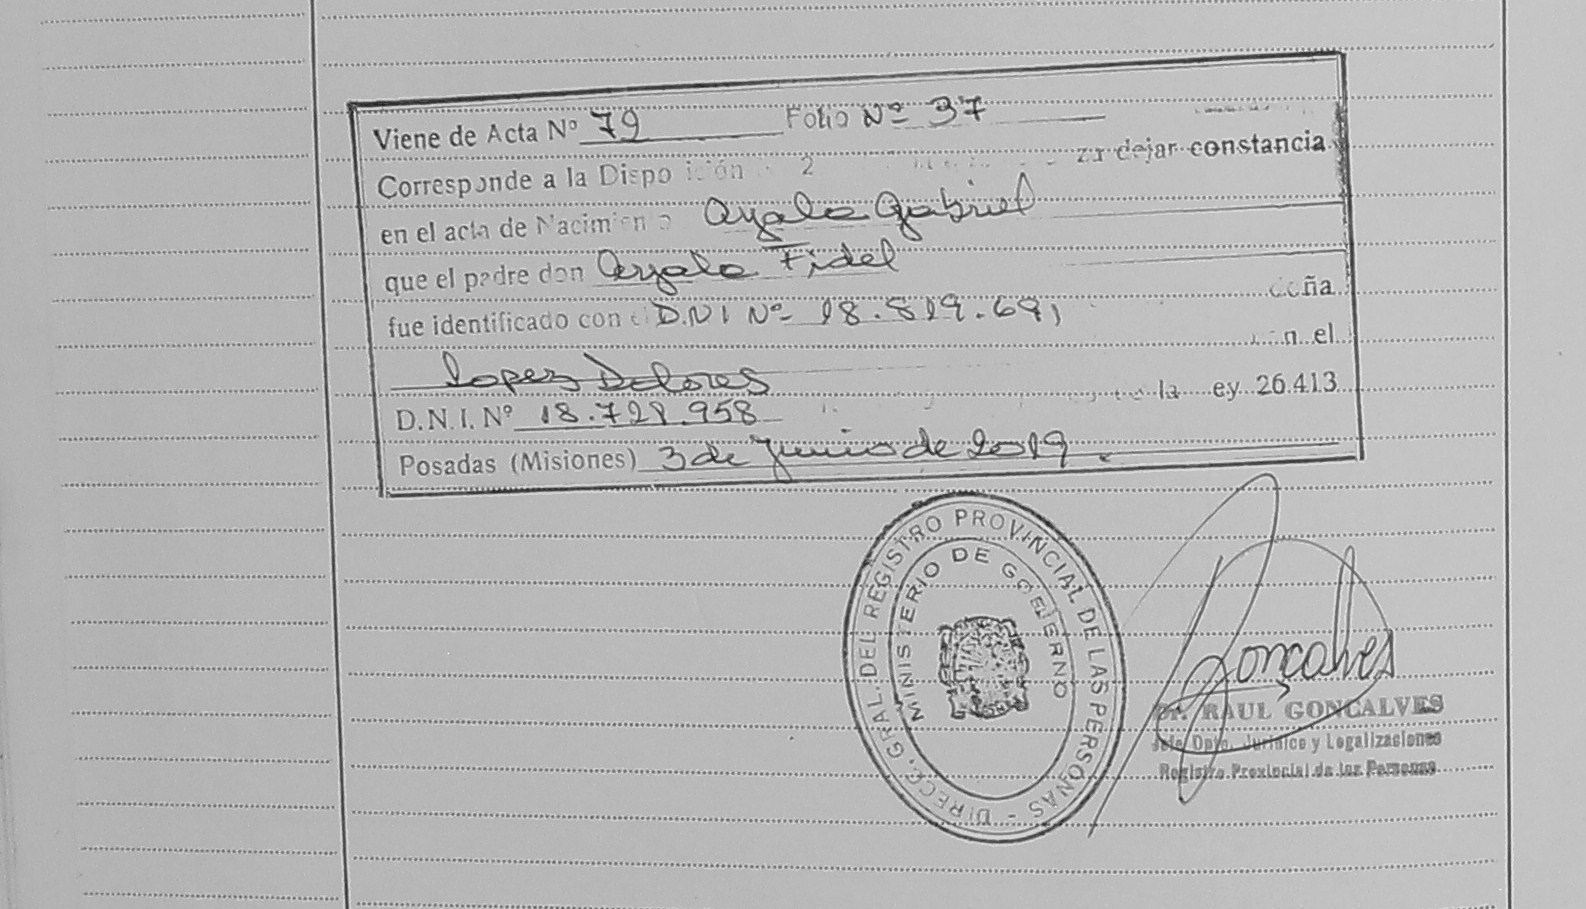 Viene de Acta Nº 79 Folio Nº 37
Corresponde a la 2 dejar constancia
en el acta de Nacimien o Ayala Gabriel
que el padre don Ayala Fidel
fue identificado con D.N.I Nº 18.819.691 doña
Lopez Dolores n el
D.N.I. Nº 18.728.958 la ey 26.413
Posadas (Misiones) 3 de Junio de 2019.
DIRECC. GRAL. DEL REGISTRO PROVINCIAL DE LAS PERSONAS -
MINISTERIO DE GOBIERNO
Gonçalves
Dr. RAUL GONCALVES
Jefe Dpto. Jurídico y Legalizaciones
Registro Provincial de las Personas